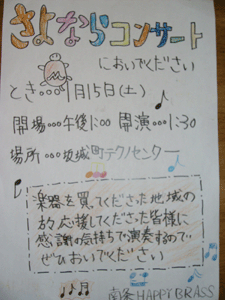 さよならコンサート
においでください
とき･･･1月15日(土)
開場･･･午後1:00 開演･･･1:30
場所･･･坂城町テクノセンター
楽器を買ってくださった地域の
方々応援してくださった皆様に
感謝の気持ちで演奏するので
ぜひおいでください
南条HAPPY BRASS